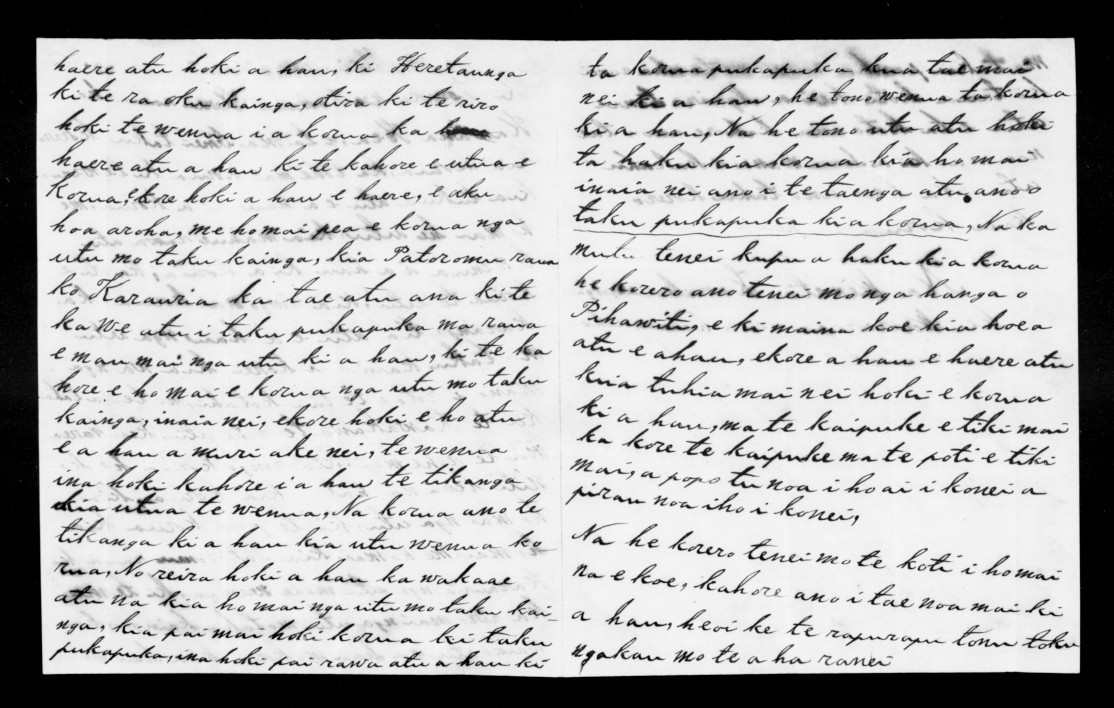 haere atu hoki a hau, ki Heretaunga
ki te ra oku kainga, otira ki te riro
hoki te wenua i a korua ka
haere atu a hau ki te kahore e utua e
Korua, ekore hoki a hau e haere, e aku
hoa aroha, me homai pea e korua nga
utu mo taku kainga, kia Patoromu raua
ko Karauria ka tae atu ana ki te
ka we atu i taku pukapuka ma raua
e mau mai nga utu ki a hau, ki te ka
hore e ho mai e korua nga utu mo taku
kainga, inaia nei, ekore hoki e ho atu
e a hau a muri ake nei, te wenua
ina hoki kahore i a hau te tikanga
kia utua te wenua, Na korua ano te
tikanga ki a hau kia utu wenua ko
rua, No reira hoki a hau ka wakaae
atu na kia ho mai nga utu mo taku kai-
nga, kia pai mai hoki korua ki taku
pukapuka, ina hoki pai rawa atu a hau ki
ta korua pukapuka kua tae mai
nei ki a hau, he tono wenua ta korua
ki a hau, Na he tono utu atu hoki
ta haku kia korua kia ho mai
inaia nei ano i te taenga atu ano o
taku pukapuka kia korua, Na ka
mutu tenei kupu a haku kia korua
he korero ano tenei mo nga hanga o
Pihawiti, e ki maina koe kia hoea
atu e ahau, ekore a hau e haere atu
kua tuhia mai nei hoki e korua
ki a hau, ma te kaipuke e tiki mai
ka kore te kaipuke ma te poti e tiki
mai, a popo tu noa i ho ai i konei a
pirau noa iho i konei,
Na he korero tenei mo te koti i homai
na e koe, kahore ano i tae noa mai ki
a hau, heoi ke te rapurapu tonu toku
ngakau mo te a ha ranei